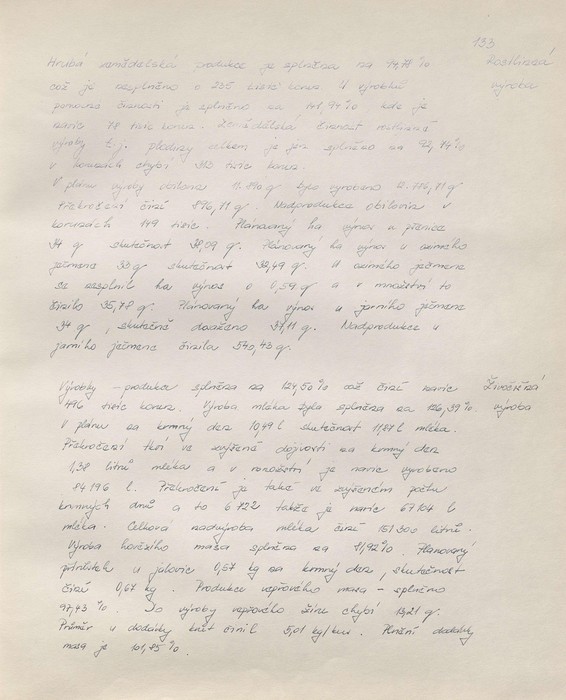 133
Hrubá zemědělská produkce je splněna na 94,78 % Rostlinná
což je nesplněno o 235 tisíc korun. U výrobků výroba
pomocné činnosti je splněno na 141,94 % kde je
navíc 78 tisíc korun. Zemědělská činnost rostlinné
výroby t.j. plodiny celkem je jen splněno na 92,94 %
v korunách chybí 313 tisíc korun.
V plánu výroby obilovin 11.890 q bylo vyrobeno 12.786,11 q
překročení činí 896,11 q. Nadprodukce obilovin v
korunách 149 tisíc. Plánovaný ha výnos u pšenice
34 q skutečnost 38,09 q. Plánovaný ha výnos u ozimého
ječmene 33 q skutečnost 32,49 q. U ozimého ječmene
se nesplnil ha výnos o 0,59 q a v množství to
činilo 35,78 q. Plánovaný ha výnos u jarního ječmene
34 q, skutečně dosaženo 37,11 q. Nadprodukce u
jarního ječmene činila 540,43 q.
Výrobky – produkce splněna na 124,50 % což činí navíc Živočišná
496 tisíc korun. Výroba mléka byla splněna na 126,39 %. výroba
V plánu na krmný den 10,49 l skutečnost 11,87 l mléka.
Překročení tkví ve zvýšené dojivosti na krmný den
1,38 litrů mléka a v množství je navíc vyrobeno
84 196 l. Překročení je také ve zvýšeném počtu
krmných dnů a to 6 422 takže je navíc 67 104 l
mléka. Celková nadvýroba mléka činí 151 300 litrů.
Výroba hovězího masa splněna na 81,92 %. Plánovaný
přírůstek u jalovic 0,57 kg na krmný den, skutečnost
činí 0,67 kg. Produkce vepřového masa – splněno
97,43 %. Do výroby vepřového žírne chybí 13,21 q.
Průměr u dodávky knít činil 5,01 kg/kus. Plnění dodávky
masa je 101,85 %.